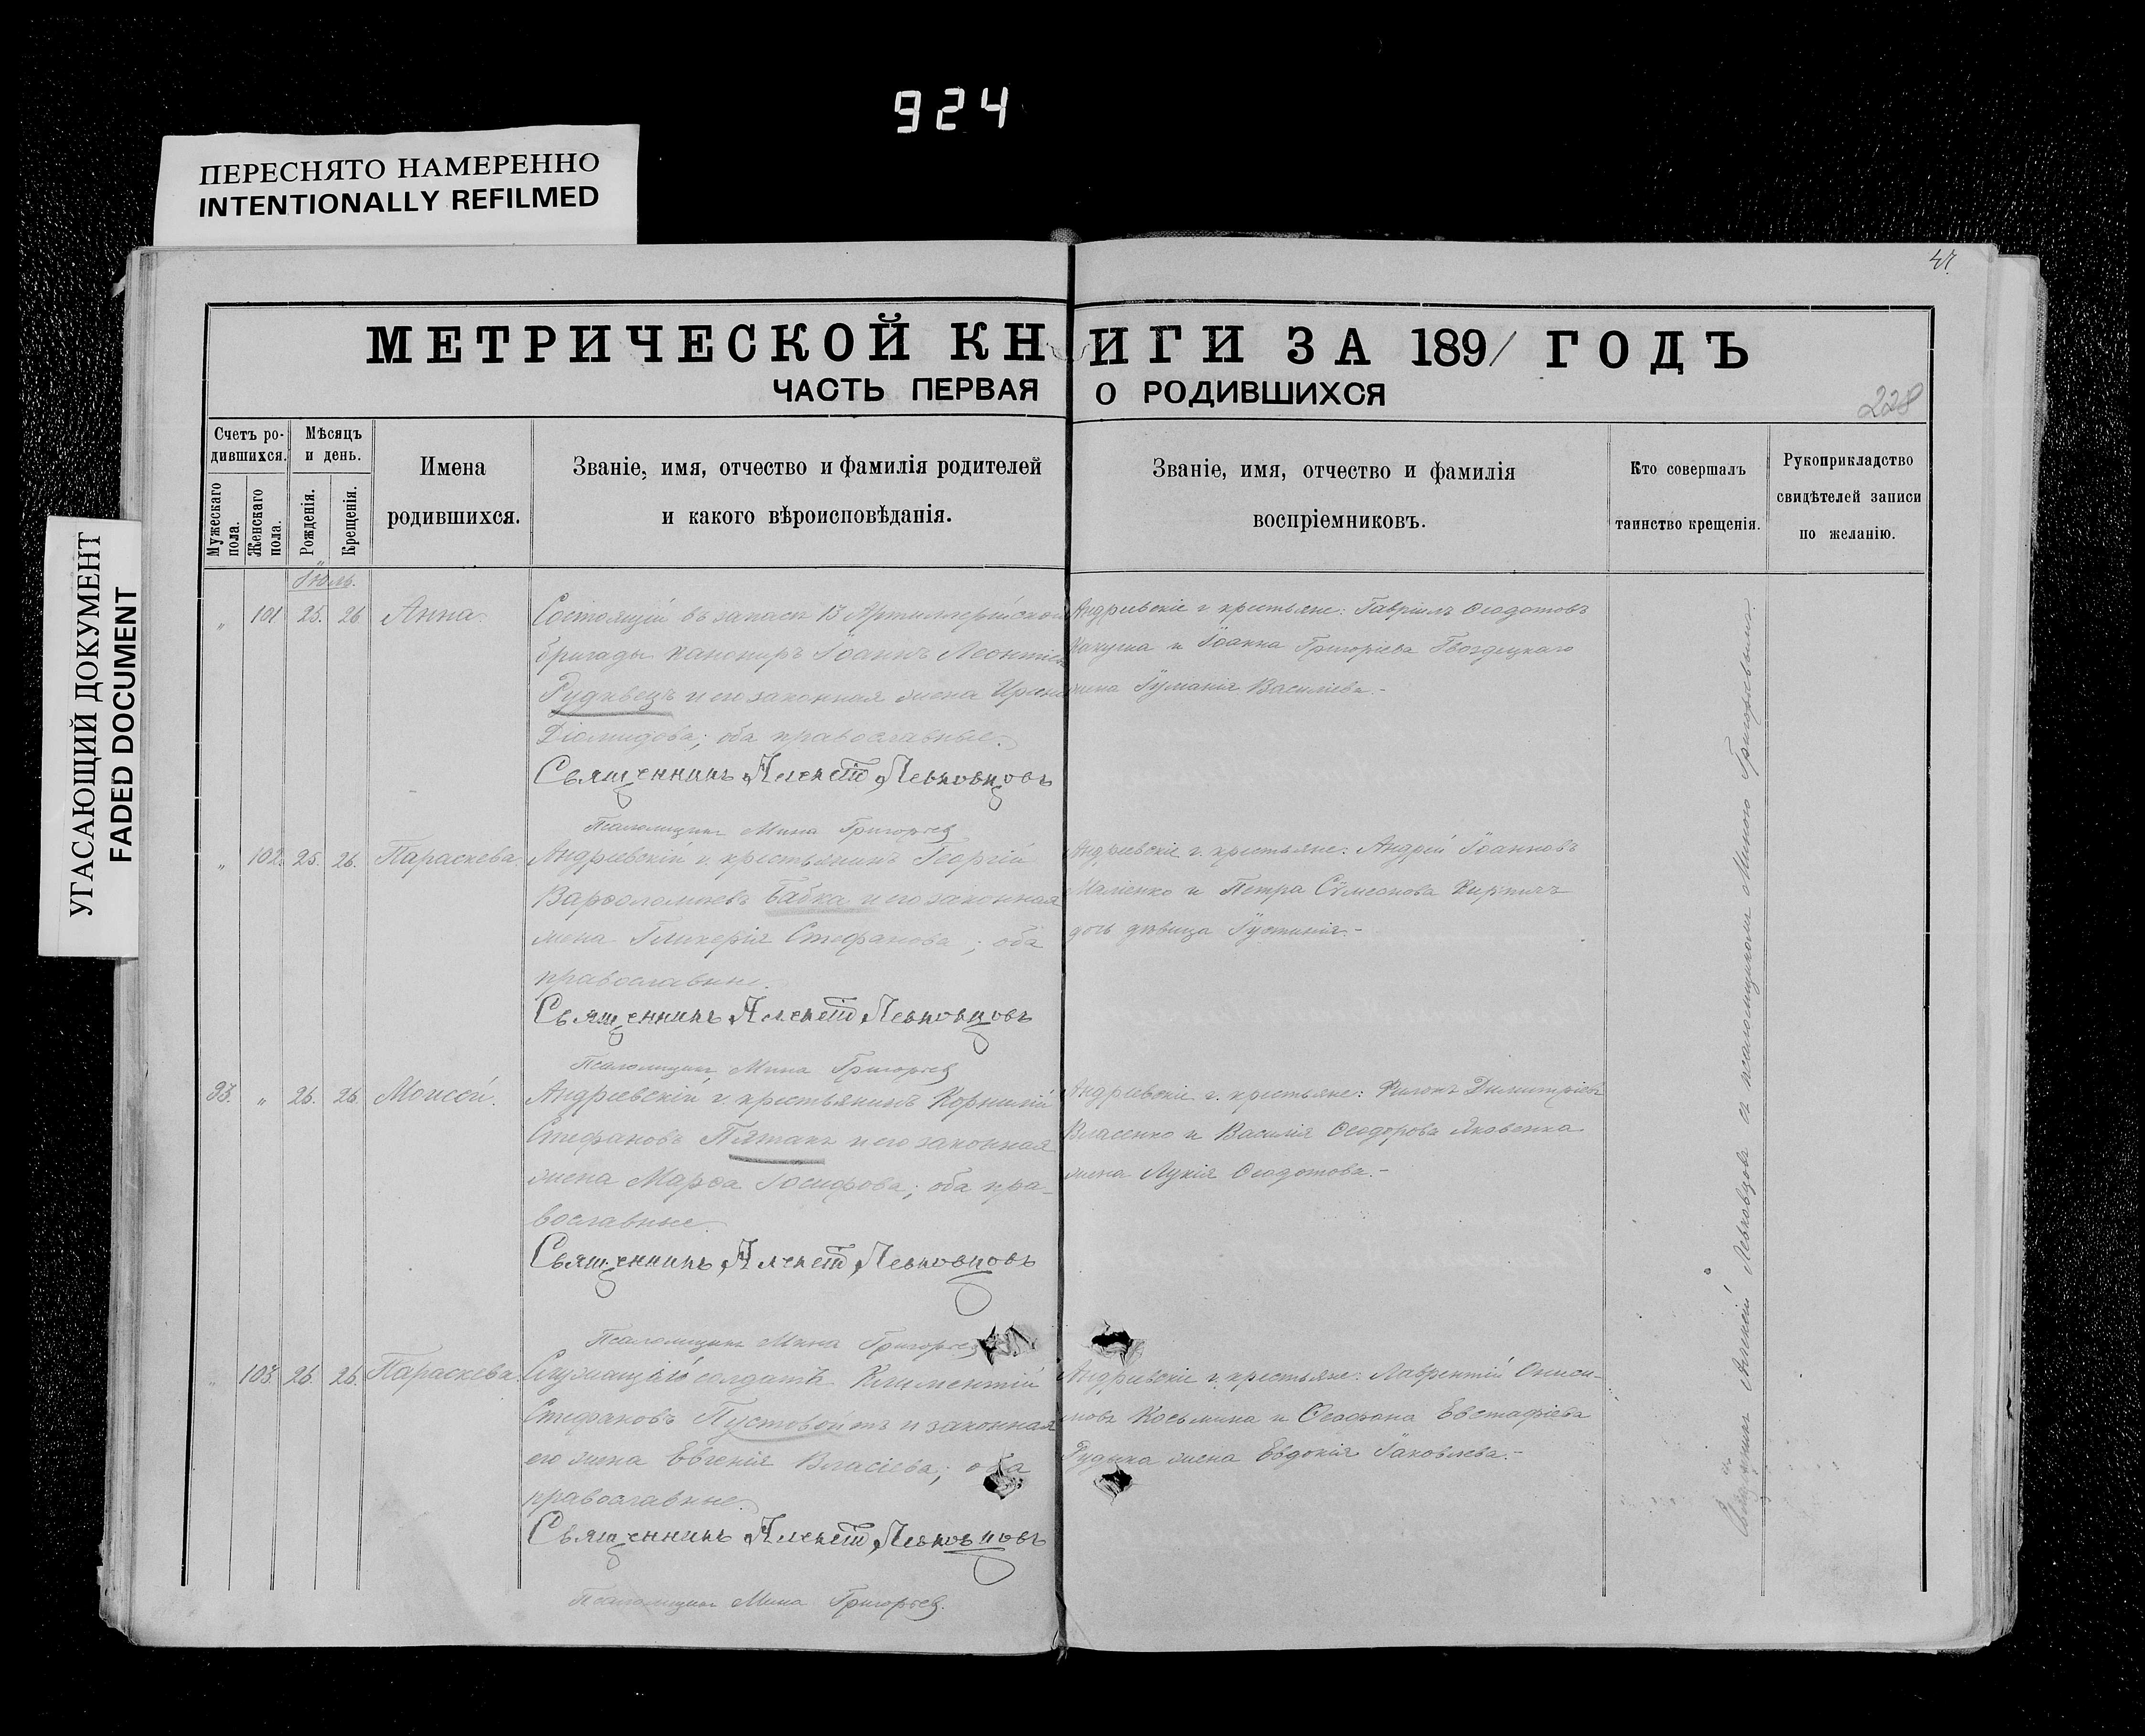 924
ПЕРЕСНЯТО НАМЕРЕННО
INTENTIONALLY REFILMED
УГАСАЮЩИЙ ДОКУМЕНТ
FADED DOCUMENT
МЕТРИЧЕСКОЙ КНИГИ ЗА 1891 ГОДЪ
ЧАСТЬ ПЕРВАЯ О РОДИВШИХСЯ
228
Счетъ ро-
дившихся.
Мужескаго пола.
Женскаго пола.
Мѣсяцъ
и день.
Рожденія.
Крещенія.
Имена
родившихся.
Званіе, имя, отчество и фамилія родителей
и какого вѣроисповѣданія.
Званіе, имя, отчество и фамилія
воспріемниковъ.
Кто совершалъ
таинство крещенія.
Рукоприкладство
свидѣтелей записи
по желанію.
Іюль.
" 101 25. 26 Анна.
Состоящій въ запасѣ 13 Артиллерійской
бригады канониръ Іоаннъ Леонтіевъ
и его законная жена
Діомидова; оба православные.
Священникъ Алексій Левковцовъ
Псаломщикъ Мина Григорьев
Андреевскіе г. крестьяне: Гавріилъ Ѳеодотовъ
и Іоанна Григоріева Гвоздецкаго
жена Василіева.-
" 102. 25. 26. Параскева
Андреевскій г. крестьянинъ Георгій
Варѳоломеевъ Бабка и его законная
жена Гликерія Стефанова; оба
православны.
Священникъ Алексій Левковцовъ
Псаломщикъ Мина Григорьев
Андреевскіе г. крестьяне: Андрей Іоанновъ
и Петра Сѵмеонова
дочь дѣвица Іустинія.-
93. " 26. 26 Моисей.
Андреевскій г. крестьянинъ Корнилій
Стефановъ Пятакъ и его законная
жена Марѳа Іосифова; оба пра-
вославные.
Священникъ Алексій Левковцовъ
Псаломщикъ Мина Григорьев
Андреевскіе г. крестьяне: Филонъ Димитріевъ
Власенко и Василія Ѳеодорова Яковенка
жена Лукія Ѳеодотова.-
103. 26. 26. Параскева
Служащій солдатъ Климентій
Стефановъ Пустовойтъ и законная
его жена Евгенія Власіева; оба
православные.
Священникъ Алексій Левковцовъ
Псаломщикъ Мина Григорьев.
Андреевскіе г. крестьяне: Лаврентій Ониси-
мовъ Косьмина и Ѳеофана Евстафіева
Рудика жена Евдокія Іаковлева.-
Священникъ Алексій Левковцовъ съ псаломщикомъ Миною Григорьевымъ.